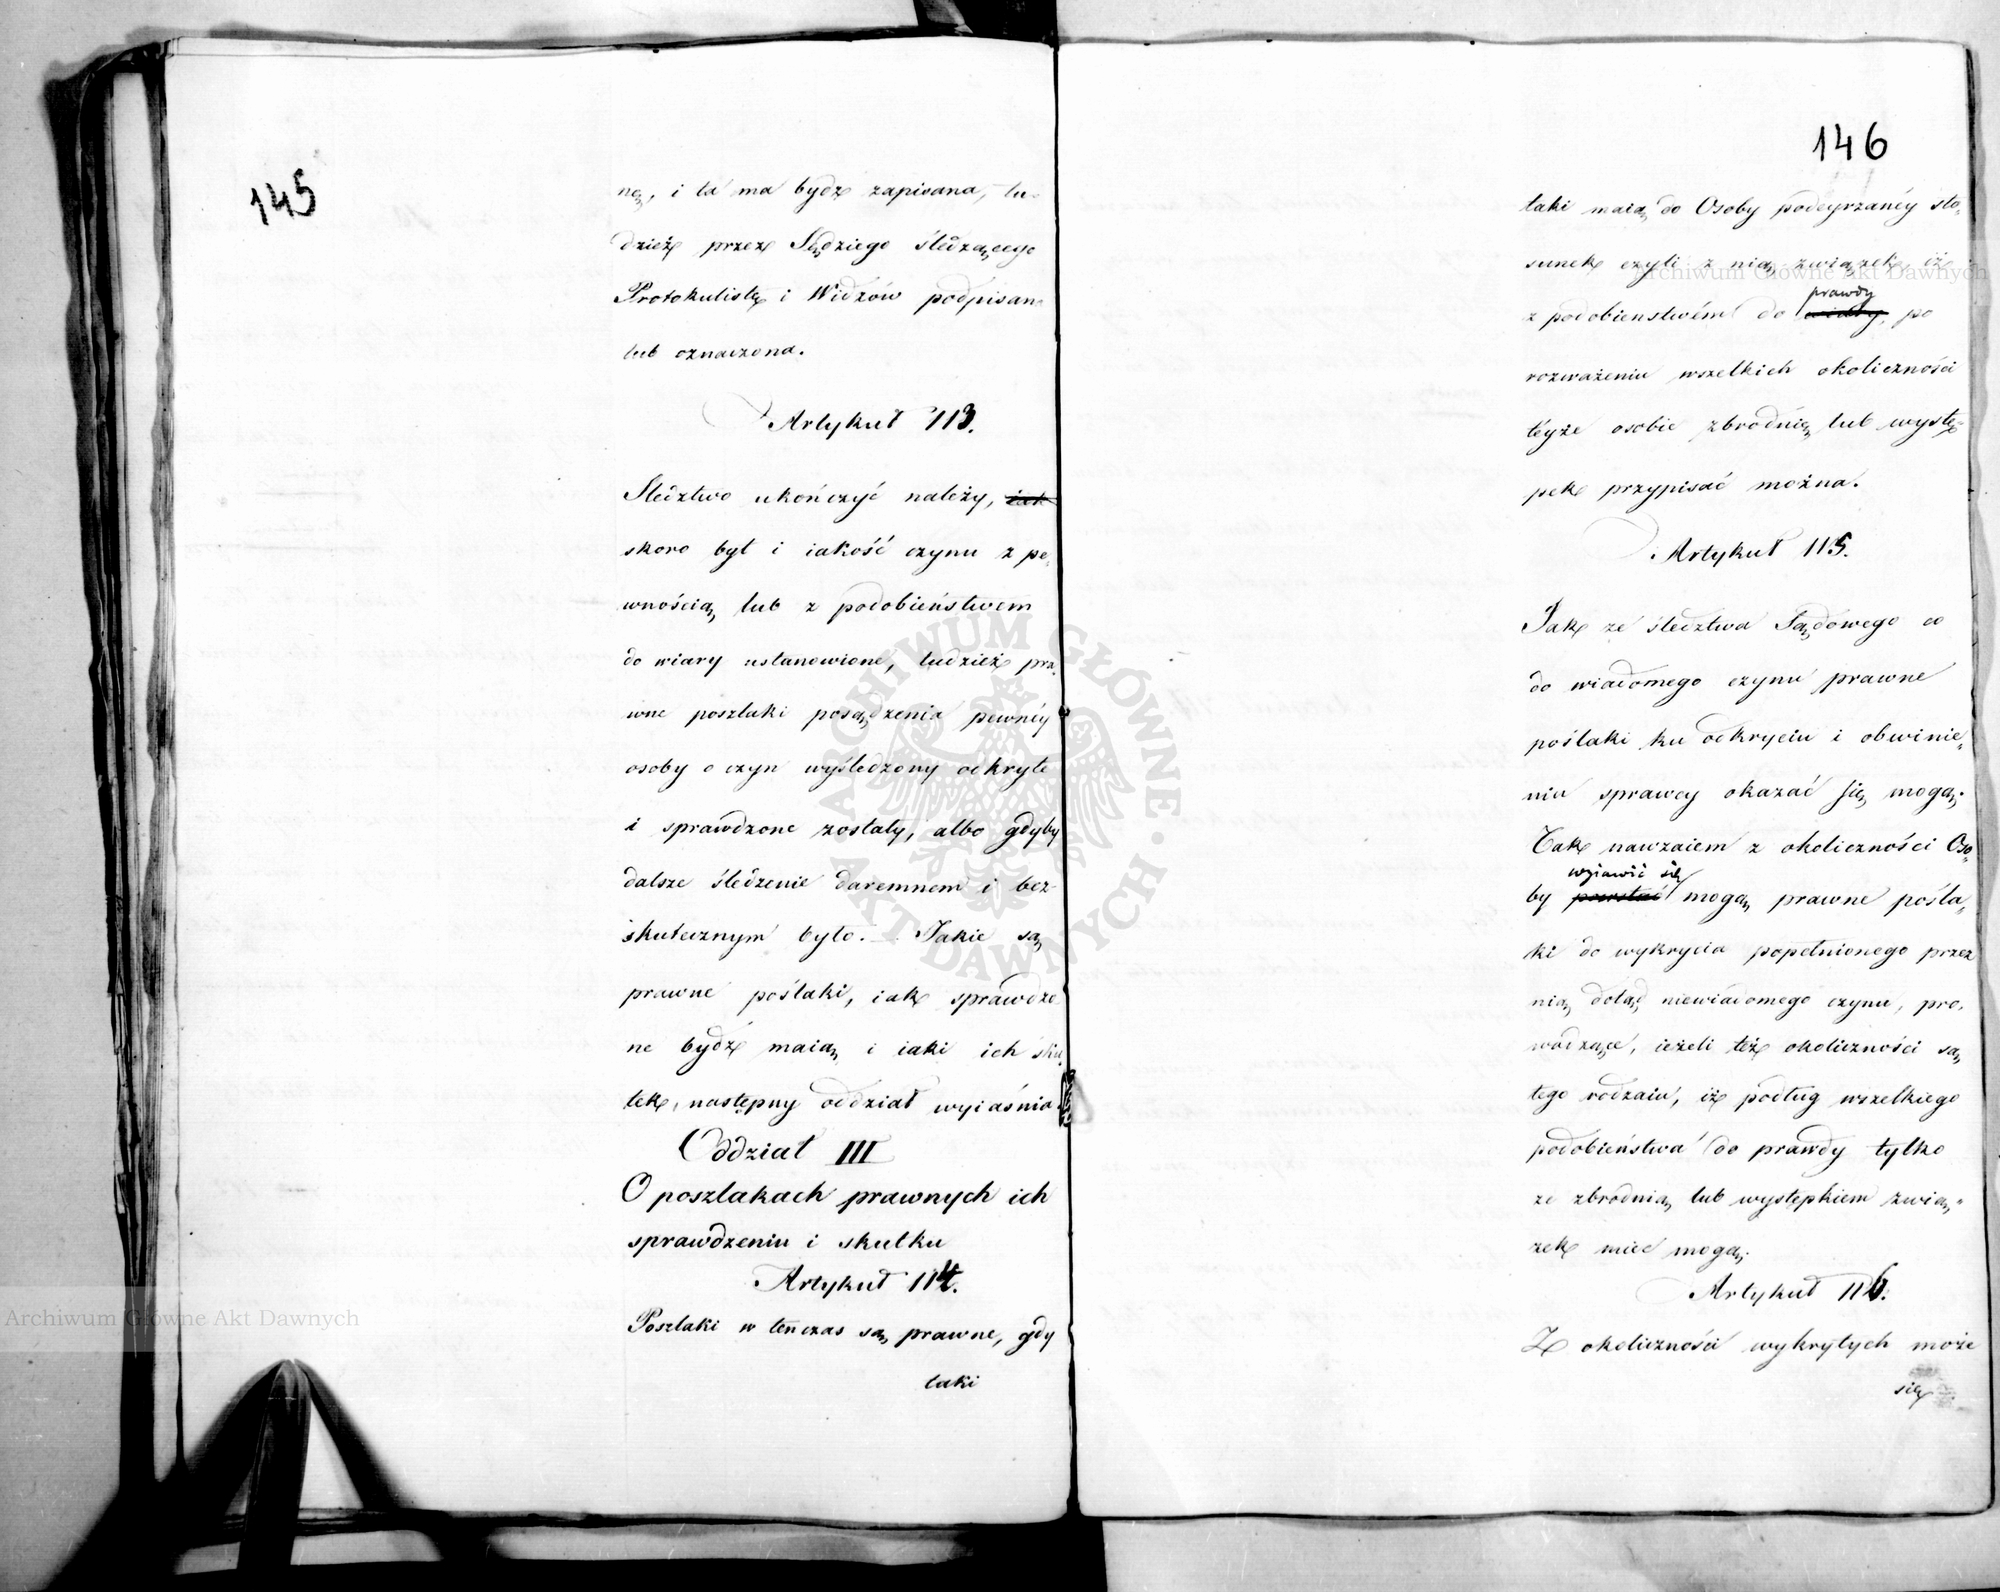 145
ną, i ta ma bydź zapisana, tu-
dzież przez Sędziego śledzącego
Protokulistę i Widzów podpisan
lub oznaczona.
Artykuł 113.
Sledztwo ukończyć należy, iak
skoro był i iakość czynu z pe-
wnością, lub z podobieństwem
do wiary ustanowione, tudzież pra-
wne poszlaki posądzenia pewnéy
osoby o czyn wyśledzony odkryte
i sprawdzone zostały, albo gdyby
dalsze śledzenie daremnem i bez-
skutecznym było. Jakie są
prawne poślaki, iak sprawdzo
ne bydź maią i iaki ich sku
tek, następny oddział wyiaśnia.
Oddział III
O poszlakach prawnych ich
sprawdzeniu i skutku
Artykuł 114.
Poszlaki w tenczas są prawne, gdy
taki
146
taki maią do Osoby podeyrzanéy sto-
sunek czyli z nią związek, iż
prawdy
z podobienstwém do wiary, po
rozważeniu wszelkich okoliczności
téyże osobie zbrodnią lub wystę-
pek przypisać można.
Artykuł 115.
Jak ze śledztwa Sądowego co
do wiadomego czynu prawne
poślaki ku odkryciu i obwinie-
niu sprawcy okazać się mogą;
Tak nawzaiem z okoliczności Oso-
wyiawić się
by powstać mogą prawne pośla-
ki do wykrycia popełnionego przez
nią dotąd niewiadomego czynu, pro-
wadzące, ieżeli też okoliczności są
tego rodzaiu, iż podług wszelkiego
podobieństwa do prawdy tylko
ze zbrodnią lub występkiem zwią-
zek mieć mogą.
Artykuł 116.
Z okoliczności wykrytych może
się
Archiwum Główne Akt Dawnych
Archiwum Główne Akt Dawnych
ARCHIWUM GŁÓWNE · AKT DAWNYCH ·